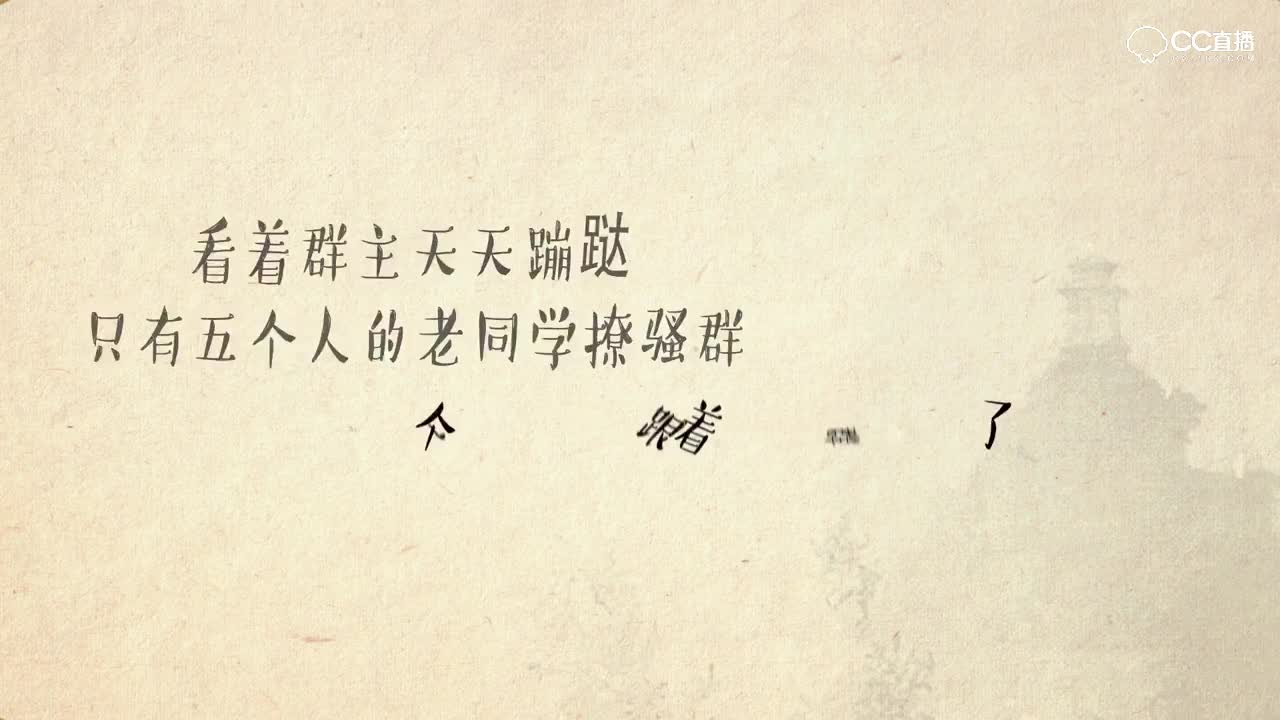 CC直播
看着群主天天蹦跶
只有五个人的老同学撩骚群
跟着 了